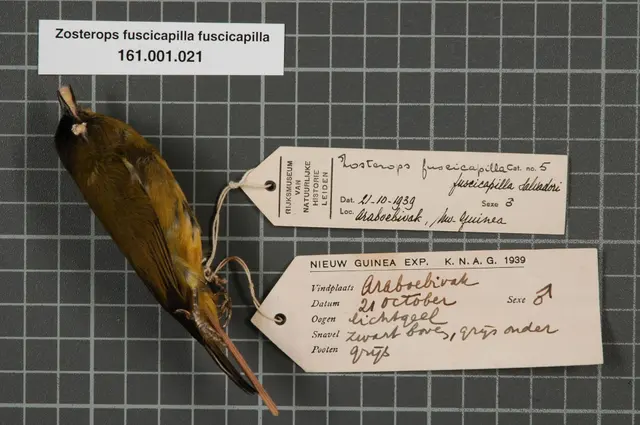 Zosterops fuscicapilla fuscicapilla
161.001.021
RIJKSMUSEUM
VAN
NATUURLIJKE
HISTORIE
LEIDEN
Zosterops fuscicapilla Cat. no. 5
fuscicapilla Salvadori
Dat. 21-10-1939 Sexe ♂
Loc. Araboebivak, Nw. Guinea
NIEUW GUINEA EXP. K. N. A. G. 1939
Vindplaats Araboebivak
Datum 21 October Sexe ♂
Oogen lichtgeel
Snavel zwart boven, grijs onder
Pooten grijs